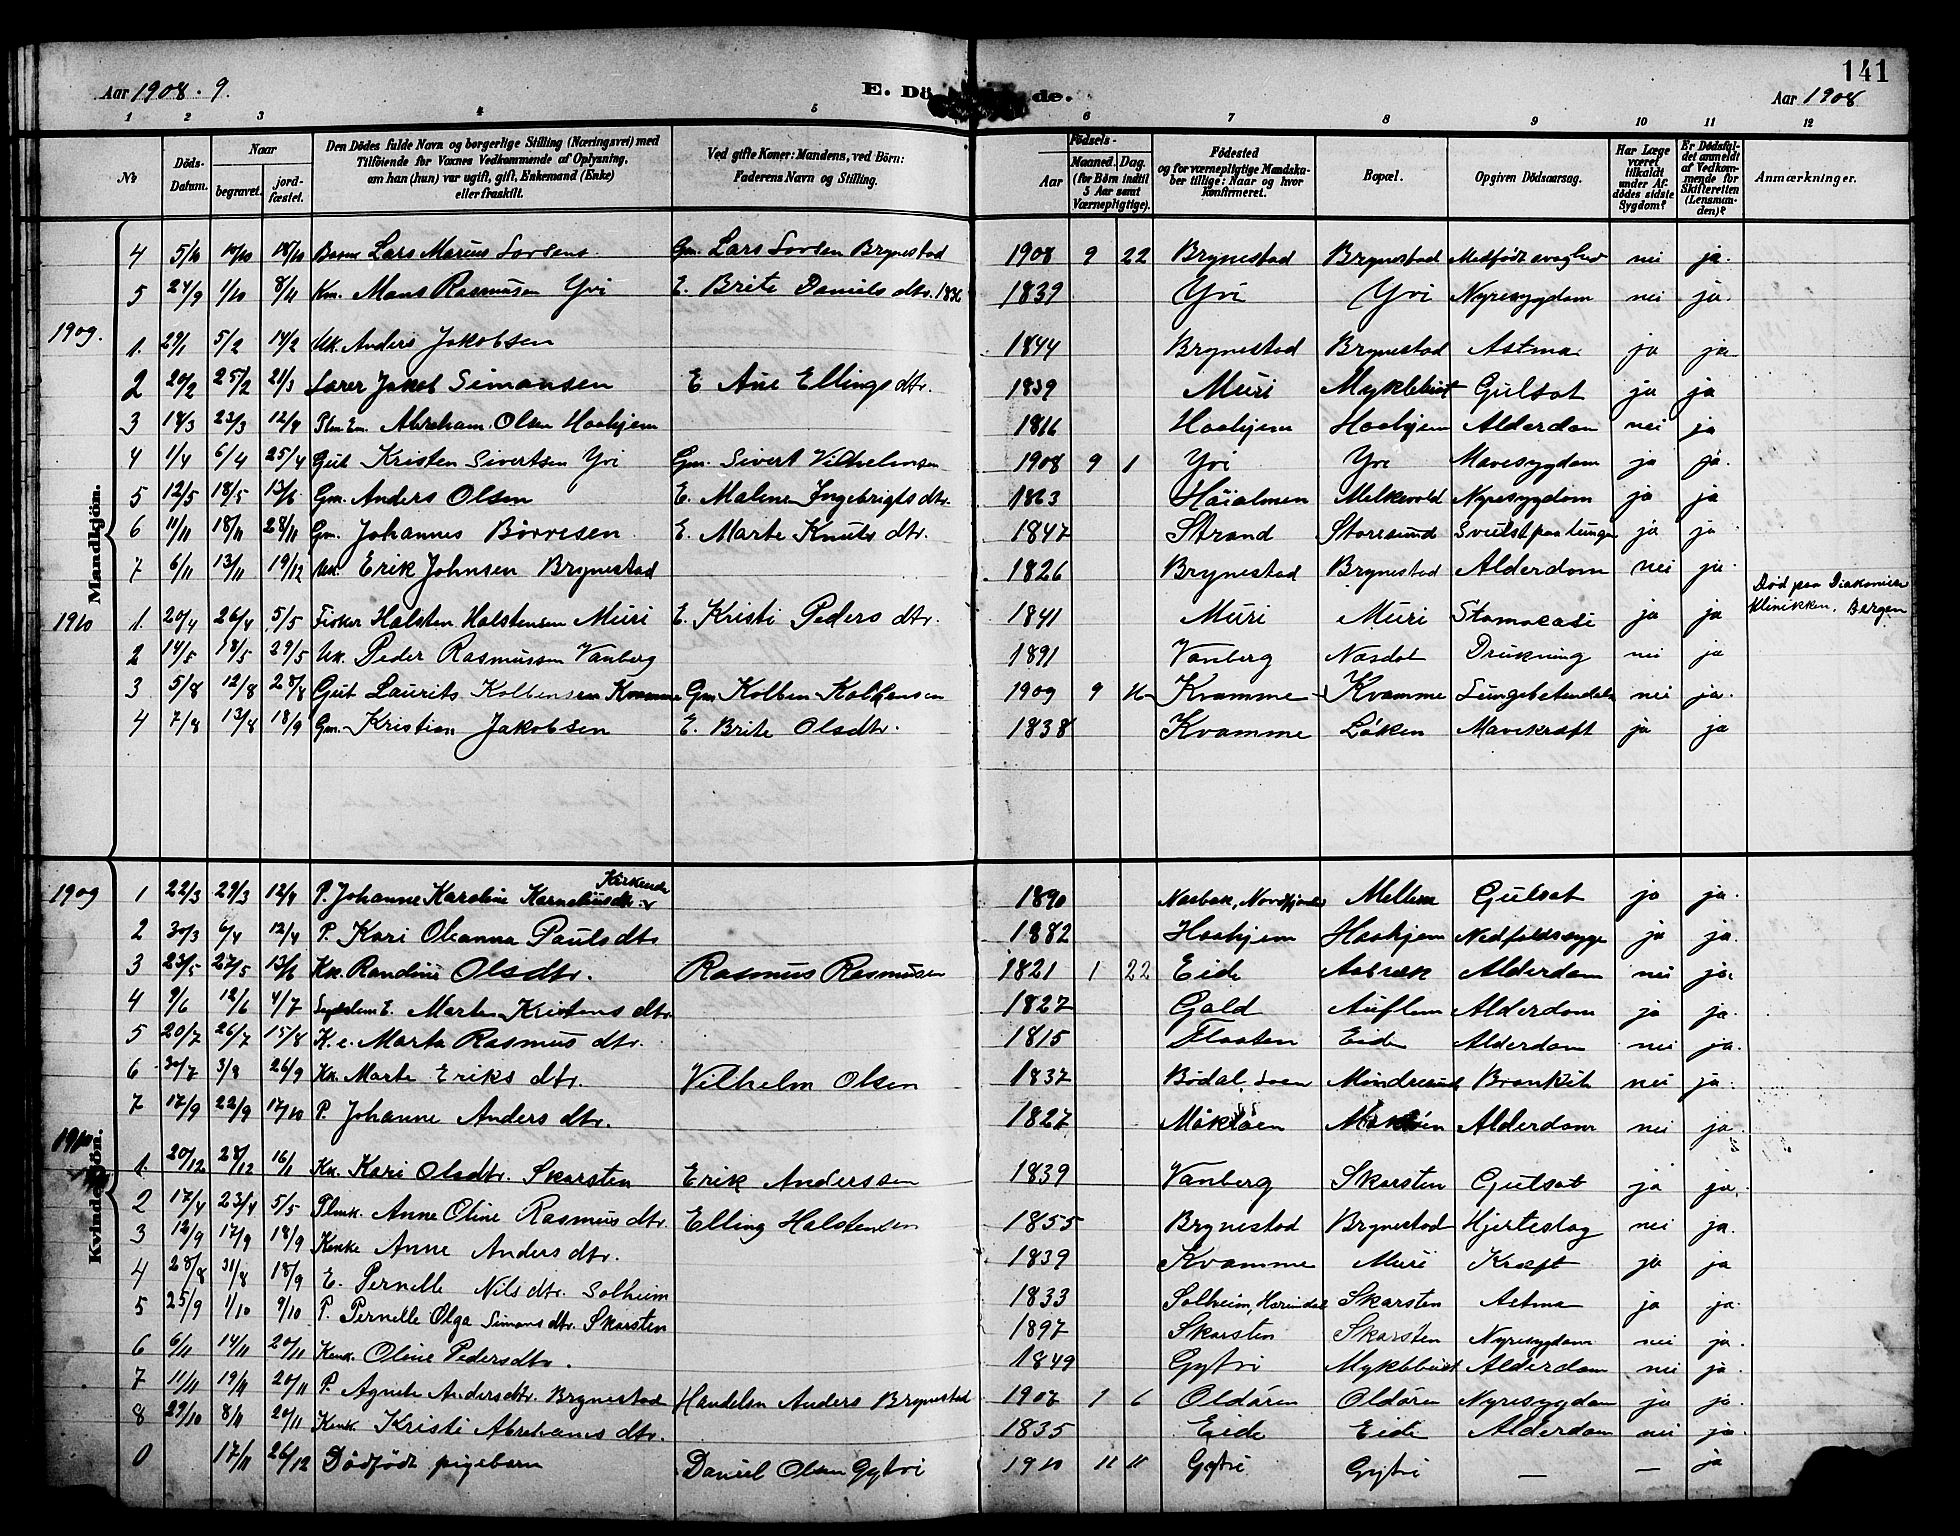 141
Aar 1908. 9. E. Dö de. Aar 1908
1 2 3 4 5 6 7 8 9 10 11 12
No Döds-Datum. Naar begravet. jordfæstet. Den Dödes fulde Navn og borgerlige Stilling (Næringsvei) med Tilföiende for Voxnes Vedkommende af Oplysning, om han (hun) var ugift, gift, Enkemand (Enke) eller fraskilt. Ved gifte Koner: Mandens, ved Börn: Faderens Navn og Stilling. Födsels- Aar Maaned. Dag. (for Börn indtil 5 Aar samt Værnepligtige). Födested og for værnepligtige Mandskaber tillige: Naar og hvor Konfirmeret. Bopæl. Opgiven Dödsaarsag. Har Læge været tilkaldt under Afdödes sidste Sygdom? Er Dödsfaldet anmeldt af Vedkommende for Skifteretten (Lensmanden)? Anmærkninger.
Mandkjön.
4 5/10 10/10 18/10 Barne Lars Marius Larsens Gm. Lars Larsen Brynestad 1908 9 22 Brynestad Brynestad Medfödt svaghed nei ja.
5 24/9 1/10 8/11 Km. Mons Rasmusen Yri E. Brite Daniels dtr. 1836 1839 Yri Yri Nyresygdom nei ja.
1909. 1. 29/1 5/2 14/2 Uk. Anders Jakobsen 1844 Brynestad Brynestad Astma ja ja
2 20/2 25/2 21/3 Lærer Jakob Simonsen E Ane Ellings dtr. 1839 Muri Myklebust Gulsot ja ja
3 18/3 23/3 12/4 Plm. Em. Abraham Olsen Haahjem 1816 Haahjem Haahjem Alderdom nei ja
4 1/4 6/4 25/4 Gut Kristen Sivertsen Yri Gm. Sivert Vilhelmsen 1908 9 1 Yri Yri Mavesygdom ja ja.
5 12/5 18/5 13/6 Gm. Anders Olsen E. Malene Ingebrigts dtr. 1863 Höialmen Melkevold Nyresygdom ja ja
6 11/11 18/11 28/11 Gm. Johannes Börresen E. Marte Knuts dtr. 1847 Strand Storesund Svulst paa lunge ja ja
7 6/11 13/11 19/12 Uk. Erik Johnsen Brynestad 1826 Brynestad Brynestad Alderdom nei ja.
1910 1. 20/4 26/4 5/5 Fisker Halsten Halstensen Muri E. Kristi Peders dtr. 1841 Muri Muri Stomacasi ja ja Död paa Diakonisse Klinikken, Bergen
2 14/5 18/5 29/5 Uk. Peder Rasmussen Vanberg 1891 Vanberg Næsdal Drukning nei ja
3 5/8 12/8 28/8 Gut Laurits Kolbensen Kvamme Gm Kolben Kolbensen 1909 9 16 Kvamme Kvamme Lungebetændelse nei ja.
4 7/8 13/8 18/9 Gm. Kristian Jakobsen E. Brite Olsdtr. 1838 Kvamme Löken Mavekræft ja ja
Kvindekjön.
1909 1 22/3 29/3 12/4 P. Johanne Karoline Karneliusdtr. Kirkende 1890 Naabak, Nordfjord Mellem Gulsot ja ja.
2 30/3 6/4 12/4 P. Kari Oleanna Paulsdtr 1882 Haahjem Haahjem Nedfaldssyge ja ja.
3 23/5 27/5 13/6 Kk. Randine Olsdtr. Rasmus Rasmusen 1821 1 22 Eide Aabrek Alderdom nei ja.
4 9/6 12/6 4/7 E. Marte Kristens dtr. 1827 Gald Auflem Alderdom ja ja.
5 20/7 26/7 15/8 K. e. Marta Rasmus dtr. 1815 Flaaten Eide Alderdom nei ja.
6 30/7 3/8 26/9 Kk. Marte Eriks dtr. Vilhelm Olsen 1837 Bödal, Loen Mindresund Bronkit nei ja.
7 17/9 22/9 17/10 P. Johanne Anders dtr. 1827 Alderdom nei ja.
1910 1. 20/12 28/12 16/1 Kk. Kari Olsdtr. Skarsten Erik Anderssen 1839 Vanberg Skarsten Gulsot ja ja.
2 17/4 23/4 5/5 Plmk. Anne Oline Rasmus dtr. Elling Halstensen 1855 Brynestad Brynestad Hjerteslag nei ja.
3 12/9 17/9 18/9 Kenke Anne Anders dtr. 1839 Kvamme Muri Kræft ja ja
4 28/8 31/8 18/9 E. Pernelle Nils dtr. Solheim 1833 Solheim, Skarsten Astma ja ja.
5 25/9 1/10 9/10 P. Pernelle Olga Simons dtr. Skarsten 1897 Skarsten Skarsten Nyresygdom nei ja.
6 6/11 14/11 20/11 Kenk. Oline Pedersdtr. 1849 Gytri Myklebust Alderdom nei ja.
7 11/11 19/11 20/11 P. Agnete Andersdtr. Brynestad Handelsm Anders Brynestad 1907 1 6 Oldören Oldören Nyresygdom ja ja.
8 29/10 8/11 20/11 Kenk. Kristi Abrahams dtr. 1835 Eide Eide Alderdom nei ja.
0 17/11 26/12 Dödfödt pigebarn Daniel Olsen Gytri 1910 11 11 Gytri Gytri — — ja